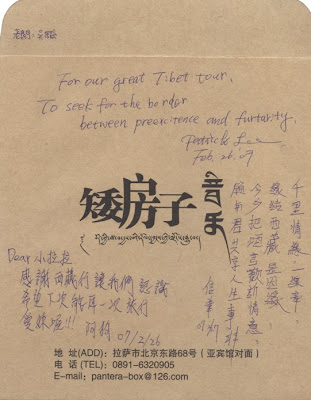 For our great Tibet tour,
To seek for the border
between preexcitence and furtarity.
Patrick Lee
Feb. 26. '07
千里情緣一線牽
緣結西藏是因緣
今夕把酒言歡訴情意
願與君共享人生事
矮房子
音乐
Dear 小拉拉
感謝西藏行讓我們認識
希望下次能再一次旅行
愛妳喔!!! 阿 07/2/26
地 址(ADD): 拉萨市北京东路68号 (亚宾馆对面)
电 话 (TEL): 0891-6320905
E-mail: pantera-box@126.com